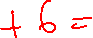 + 6 =